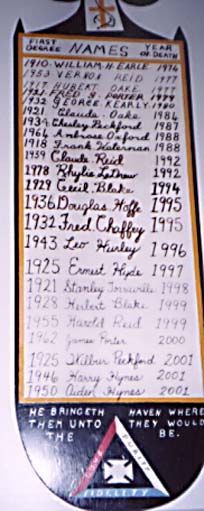 FIRST DEGREE NAMES YEAR OF DEATH
1910 WILLIAM H. EARLE 1974
1953 VERNON REID 1977
1917 HUBERT OAKE 1977
1932 FRED S. PORTER 1979
1932 GEORGE KEARLY 1980
1921 Claude Oake 1984
1934 Chesley Peckford 1987
1964 Ambrose Oxford 1988
1918 Frank Waterman 1988
1939 Claude Reid 1992
1978 Phylis 1992
1929 Cecil Blake 1994
1936 Douglas Hoffe 1995
1932 Fred Chaffey 1995
1943 Leo Hurley 1996
1925 Ernest Hyde 1997
1921 Stanley 1998
1928 Herbert Blake 1999
1955 Harold Reid 1999
1962 James Porter 2000
1925 Wilbur Peckford 2001
1946 Harry Hynes 2001
1950 Aiden Hynes 2001
HE BRINGETH HAVEN WHERE
THEM UNTO THEY WOULD
THE BE.
LOVE PURITY
FIDELITY